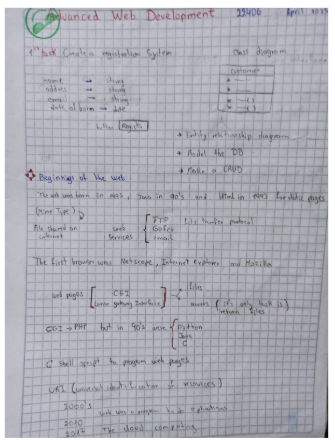 Advanced Web Development 22406 April 2023
1st task Create a registration System class diagram
customer
name → string
address → string
email → string
date of born → date
button Register
* Entity relationship diagram
* Model the DB
* Make a CRUD
Beginnings of the web
The web was born in , Java in 90's and Html in for static pages
(Mime Type)
File shared on internet
web services { FTP File transfer protocol
Gofer
Email
The first browser was Netscape, Internet explorer and Mozilla
web pages [ CGI
Gateway Interface ] files
(it's only task is)
return files
CGI → PHP but in 90's were { Python
C
C shell script to program web pages
URI (universal identification of resources)
2000's
2010
The cloud computing